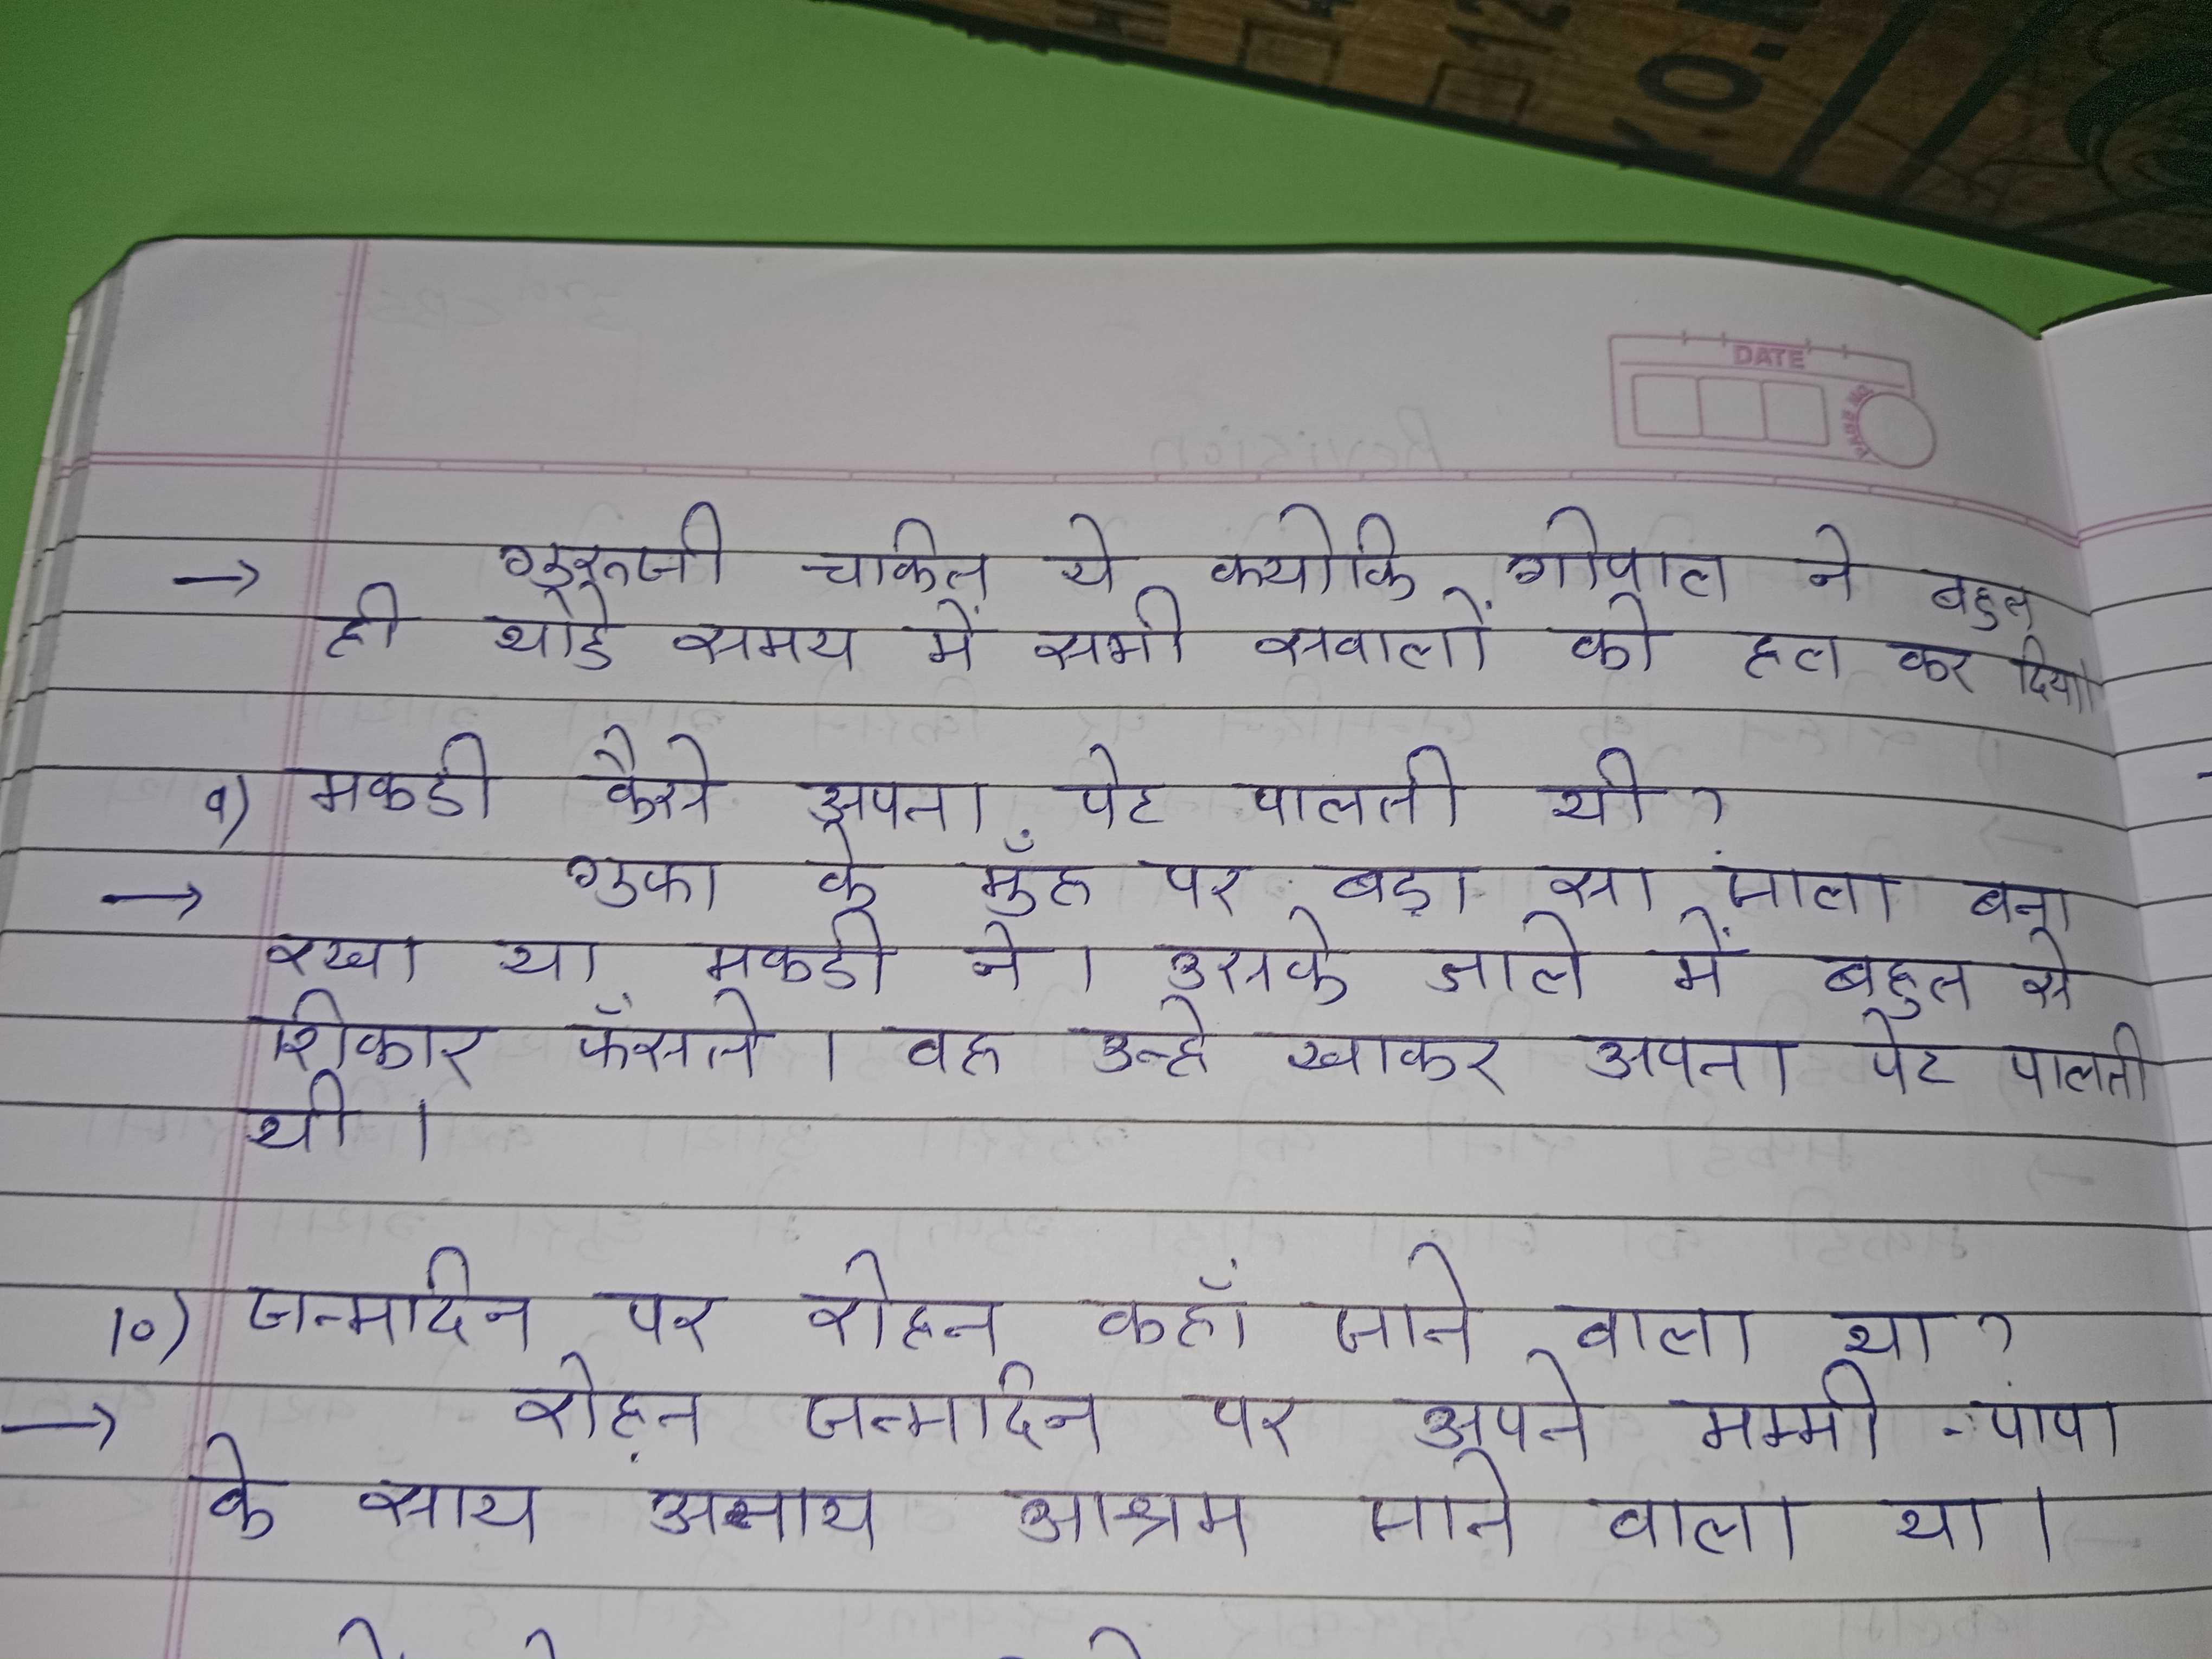 DATE
PAGE NO.
Revision
→ गुरूजी चकित थे क्योकि गोपाल ने बहुत
ही थोडे समय में सभी सवालों को हल कर दिया।
9) मकडी कैसे अपना पेट पालती थी ?
→ गुफा के मुँह पर बड़ा सा जाला बना
रखा था मकडी ने । उसके जाले में बहुत से
शिकार फँसते । वह उन्हे खाकर अपना पेट पालती
थी ।
10) जन्मदिन पर रोहन कहाँ जाने वाला था ?
→ रोहन जन्मदिन पर अपने मम्मी - पापा
के साथ अनाथ आश्रम जाने वाला था ।